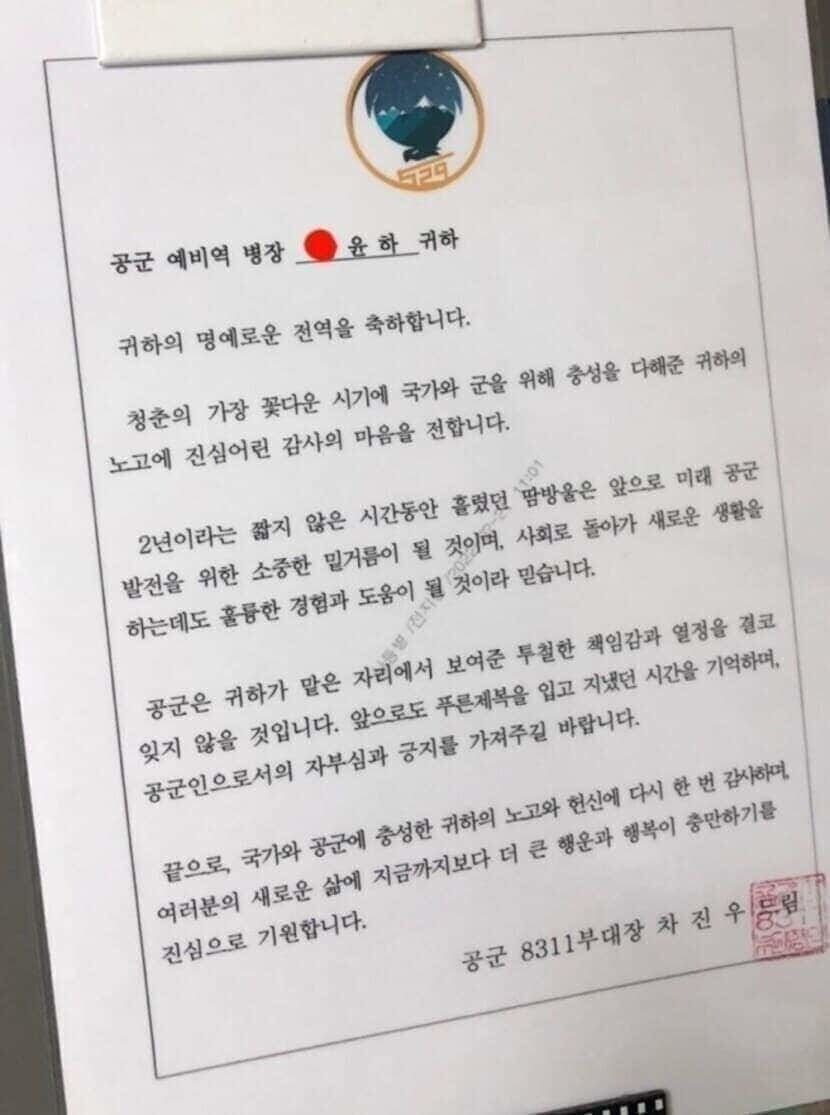 529
공군 예비역 병장 윤 하 귀하
귀하의 명예로운 전역을 축하합니다.
청춘의 가장 꽃다운 시기에 국가와 군을 위해 충성을 다해준 귀하의
노고에 진심어린 감사의 마음을 전합니다.
2년이라는 짧지 않은 시간동안 흘렸던 땀방울은 앞으로 미래 공군
발전을 위한 소중한 밑거름이 될 것이며, 사회로 돌아가 새로운 생활을
하는데도 훌륭한 경험과 도움이 될 것이라 믿습니다.
공군은 귀하가 맡은 자리에서 보여준 투철한 책임감과 열정을 결코
잊지 않을 것입니다. 앞으로도 푸른제복을 입고 지냈던 시간을 기억하며,
공군인으로서의 자부심과 긍지를 가져주길 바랍니다.
끝으로, 국가와 공군에 충성한 귀하의 노고와 헌신에 다시 한 번 감사하며,
여러분의 새로운 삶에 지금까지보다 더 큰 행운과 행복이 충만하기를
진심으로 기원합니다.
공군 8311부대장 차 진 우 드림
11:01